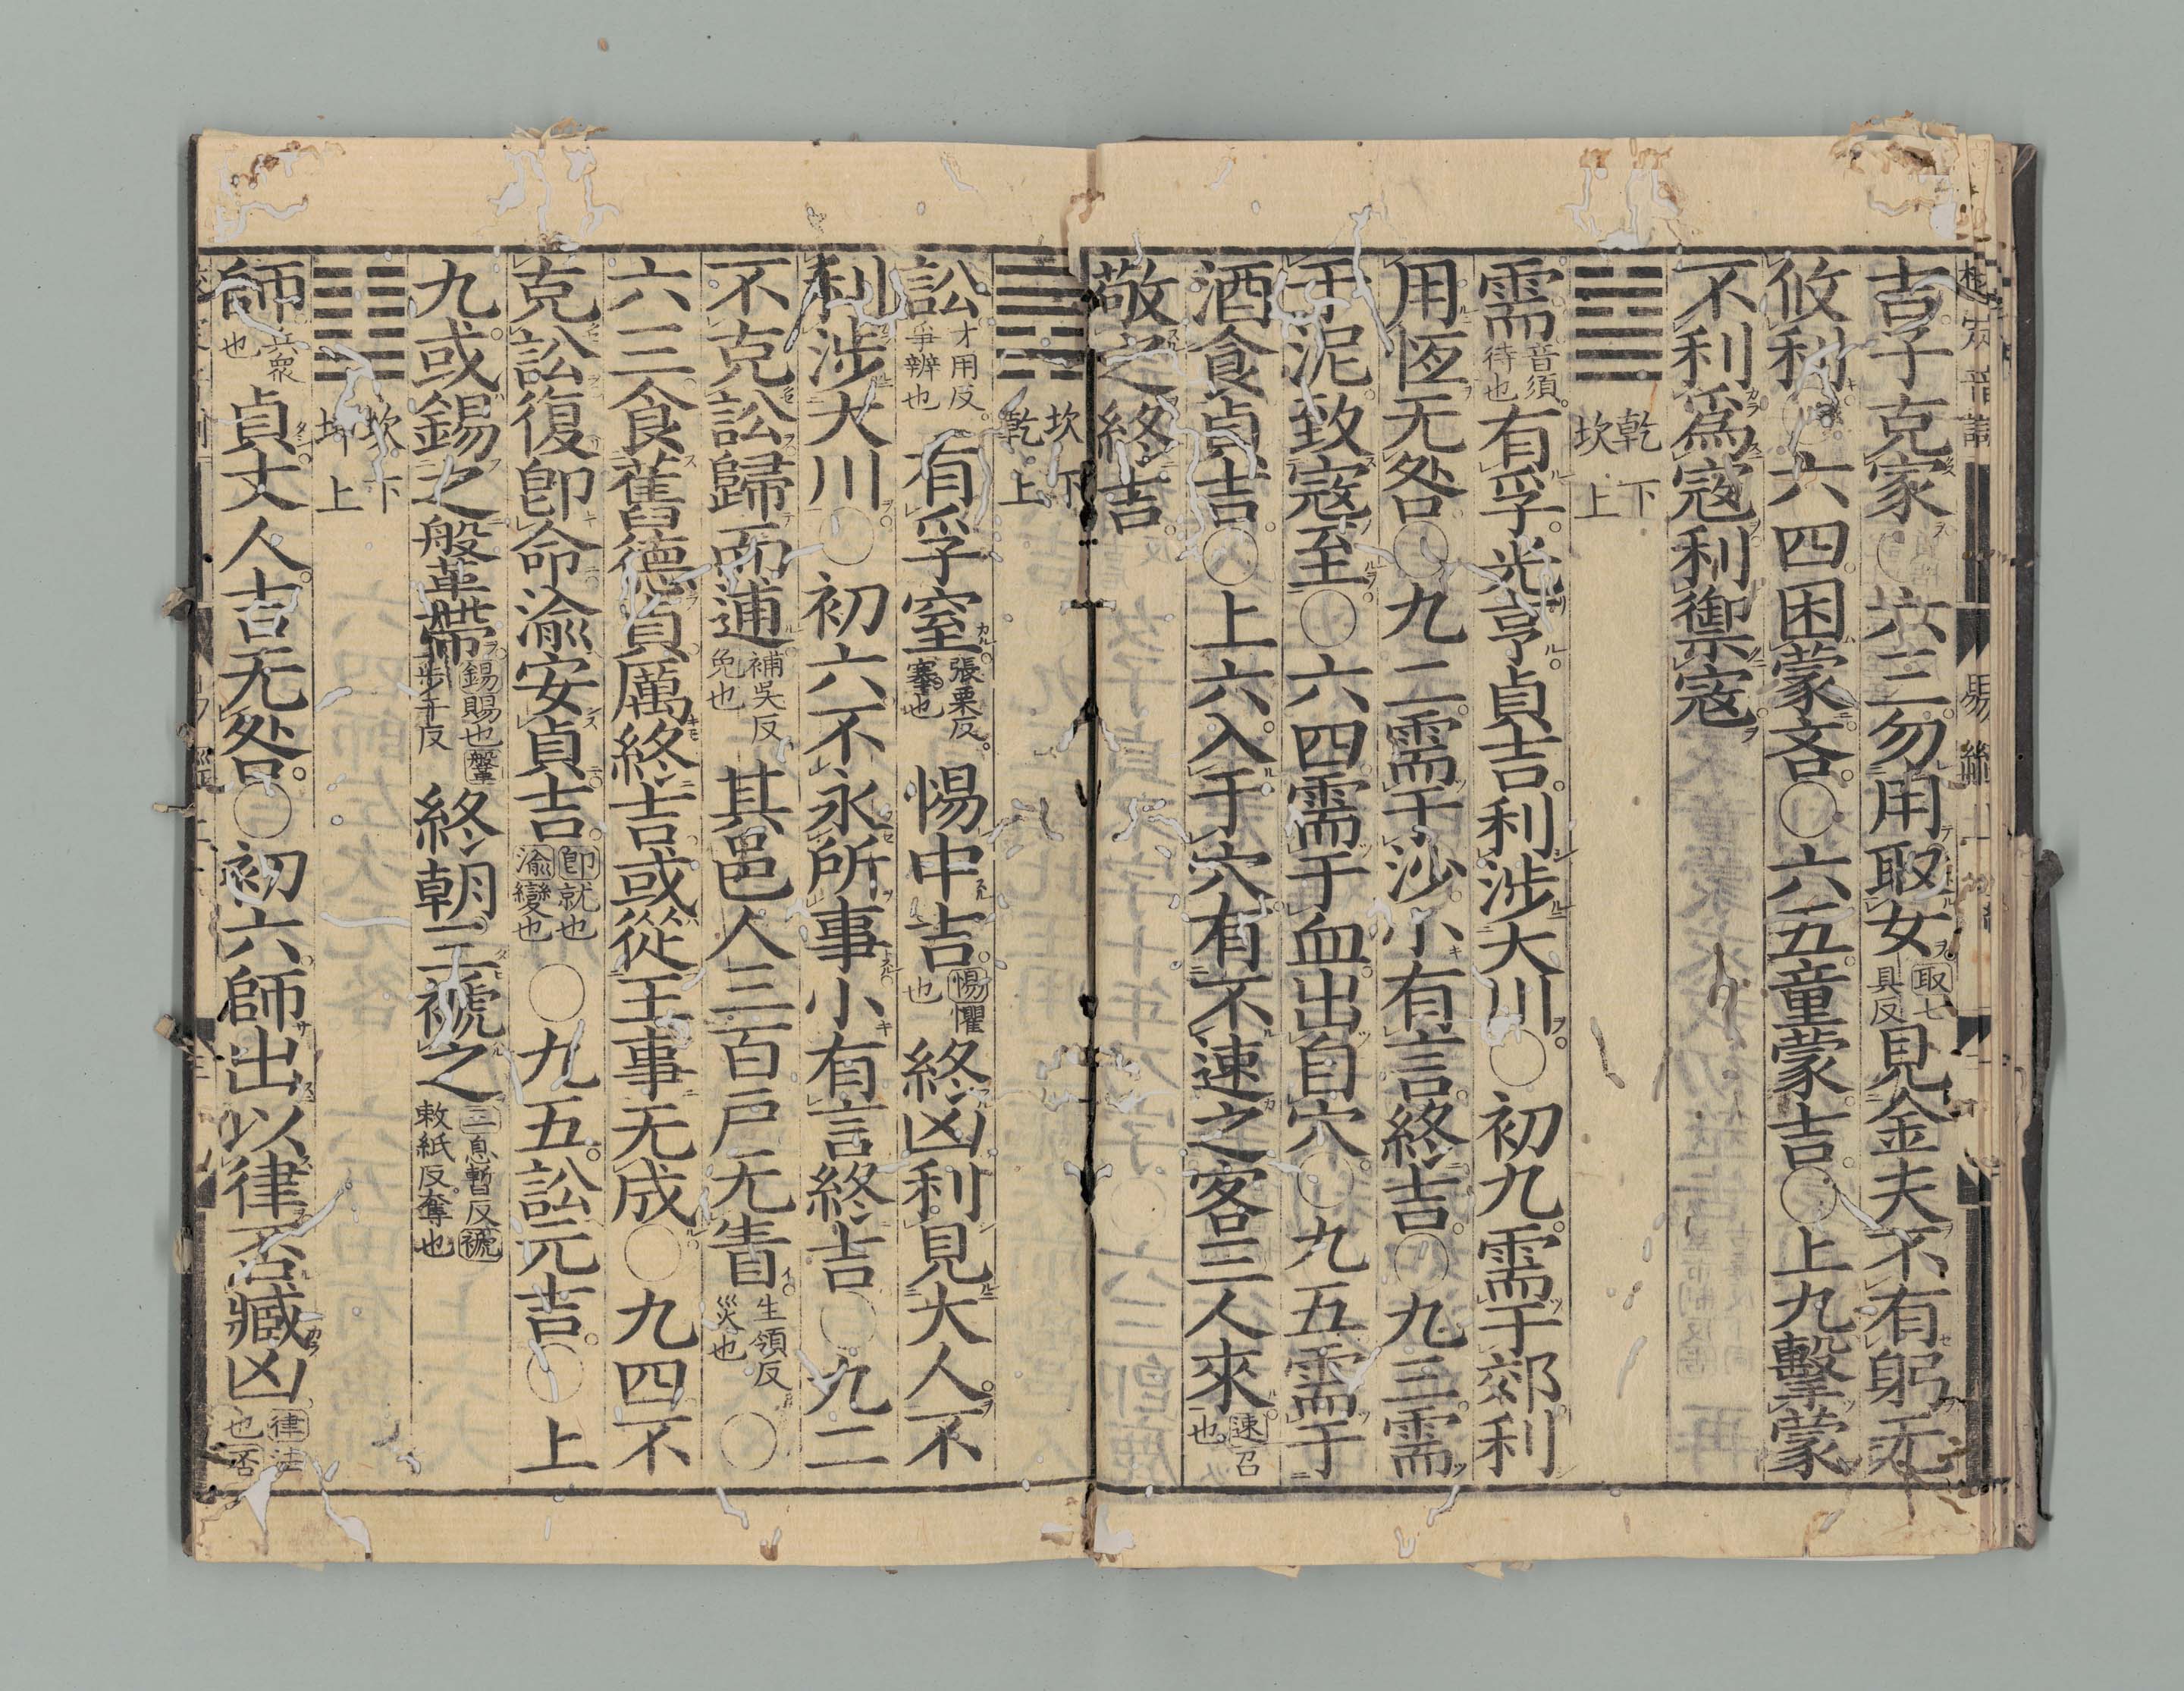 吉子克家○六三勿用取女取七具反見金夫不有躬无
攸利○六四困蒙吝○六五童蒙吉○上九擊蒙
不利爲寇利御示寇
乾下坎上
需音須待也有孚光亨貞吉利涉大川○初九需于郊利
用恆无咎○九二需于沙小有言終吉○九三需
于泥致寇至○六四需于血出自穴○九五需于
酒食貞吉○上六入于穴有不速之客三人來速召也
敬之終吉
坎下乾上
訟才用反爭辨也有孚窒張栗反塞也惕中吉惕懼也終凶利見大人不
利涉大川○初六不永所事小有言終吉○九二
不克訟歸而逋補吳反免也其邑人三百戸无眚生領反災也○
六三食舊德貞厲終吉或從王事无成○九四不
克訟復即命渝安貞吉即就也渝變也○九五訟元吉○上
九或錫之鞶革帶錫賜也鞶步干反終朝三褫之三息暫反褫敕紙反奪也
坎下上
師兵衆也貞丈人吉无咎○初六師出以律否臧凶律法也否